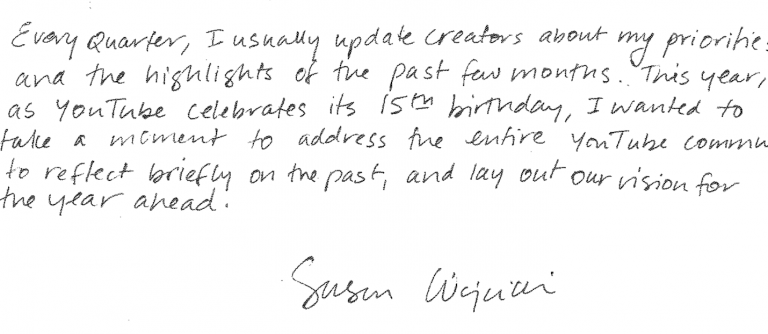 Every Quarter, I usually update creators about my prioritie
and the highlights of the past few months. This year,
as YouTube celebrates its 15th birthday, I wanted to
take a moment to address the entire YouTube commu
to reflect briefly on the past, and lay out our vision for
the year ahead.
Susan Wojcicki